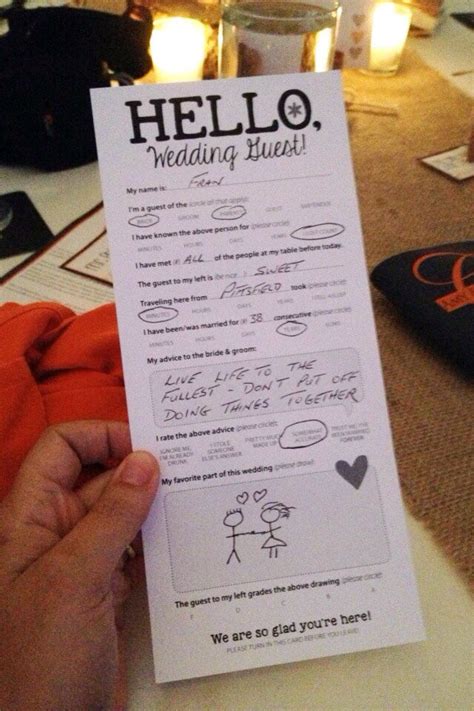 HELLO,
Wedding Guest!
My name is: FRAN
I'm a guest of the (circle all that apply):
BRIDE GROOM PARENTS BARTENDER
I have known the above person for (please circle):
MINUTES HOURS DAYS YEARS
I have met (#) ALL of the people at my table before today.
The guest to my left is (be nice) : SWEET
Traveling here from PITSFIELD took (please circle):
MINUTES HOURS DAYS
I have been/was married for (#) 38 consecutive (please circle):
MINUTES HOURS DAYS YEARS
My advice to the bride & groom:
LIVE LIFE TO THE
FULLEST - DON'T PUT OFF
DOING THINGS TOGETHER
I rate the above advice (please circle):
IGNORE ME, I'M ALREADY DRUNK
I STOLE SOMEONE ELSE'S ANSWER
PRETTY MUCH MADE UP
SOMEWHAT ACCURATE
TRUST ME, I'VE BEEN MARRIED FOREVER
My favorite part of this wedding (please draw):
The guest to my left grades the above drawing (please circle):
F D C B A
We are so glad you're here!
PLEASE TURN IN THIS CARD BEFORE YOU LEAVE!